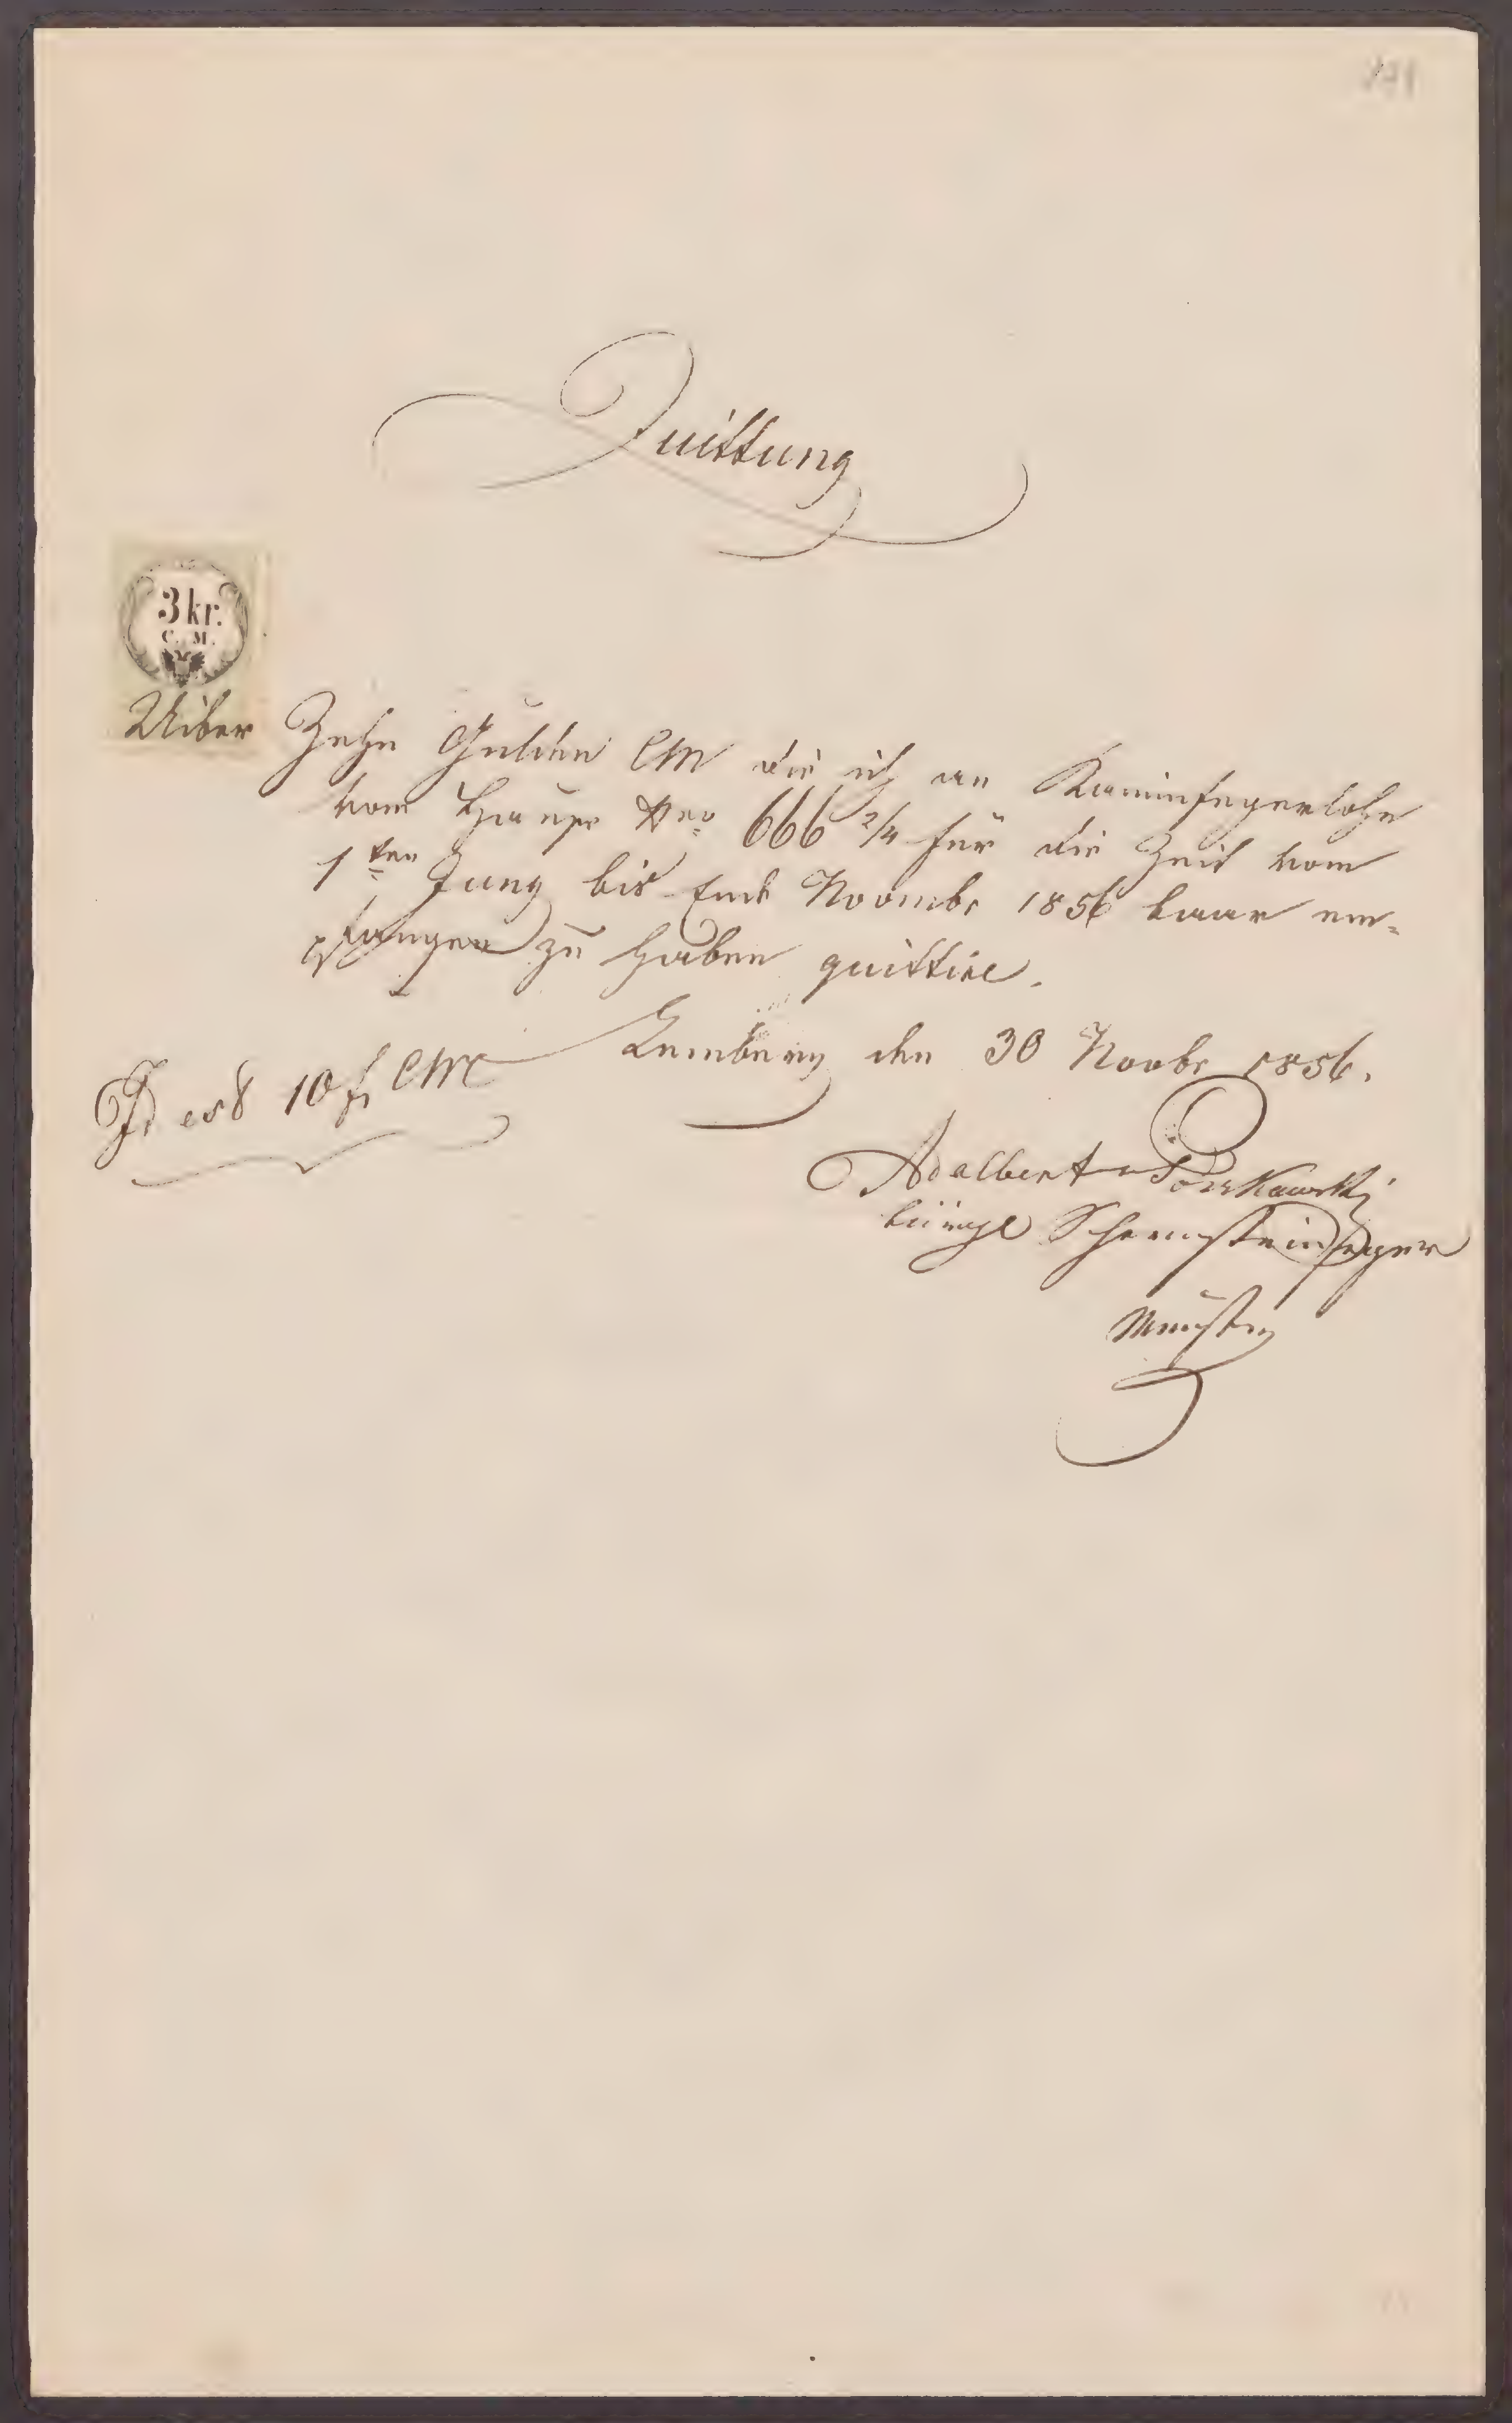 Quittung
3 kr.
C. M.
Uiber Zehn Gulden CM die ich an Kaminfegerlohn
vom Hause Nro 666 2/4 für die Zeit vom
1ten Juny bis Ende Novmbr 1856 baar em=
pfangen zu haben quittire.
Lemberg den 30 Novbr 1856.
Id est 10 f CM
Adalbert
bürgl Schornsteinfeger
Meister